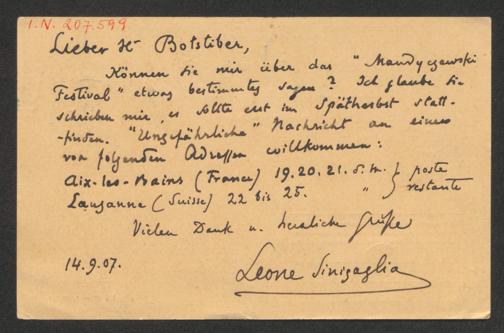 I.N. 207.599
Lieber H Botstiber,
Können Sie mir über das "Mandyczewski
Festival" etwas bestimmtes sagen? Ich glaube Sie
schrieben mir, es sollte erst im Spätherbst statt-
-finden. "Ungefährliche" Nachricht an eine
von folgenden Adressen willkommen:
Aix-les-Bains (France) 19.20.21. d. M. } poste
Lausanne (Suisse) 22 bis 25. " } restante
Vielen Dank u. herzliche Grüße
14.9.07. Leone Sinigaglia